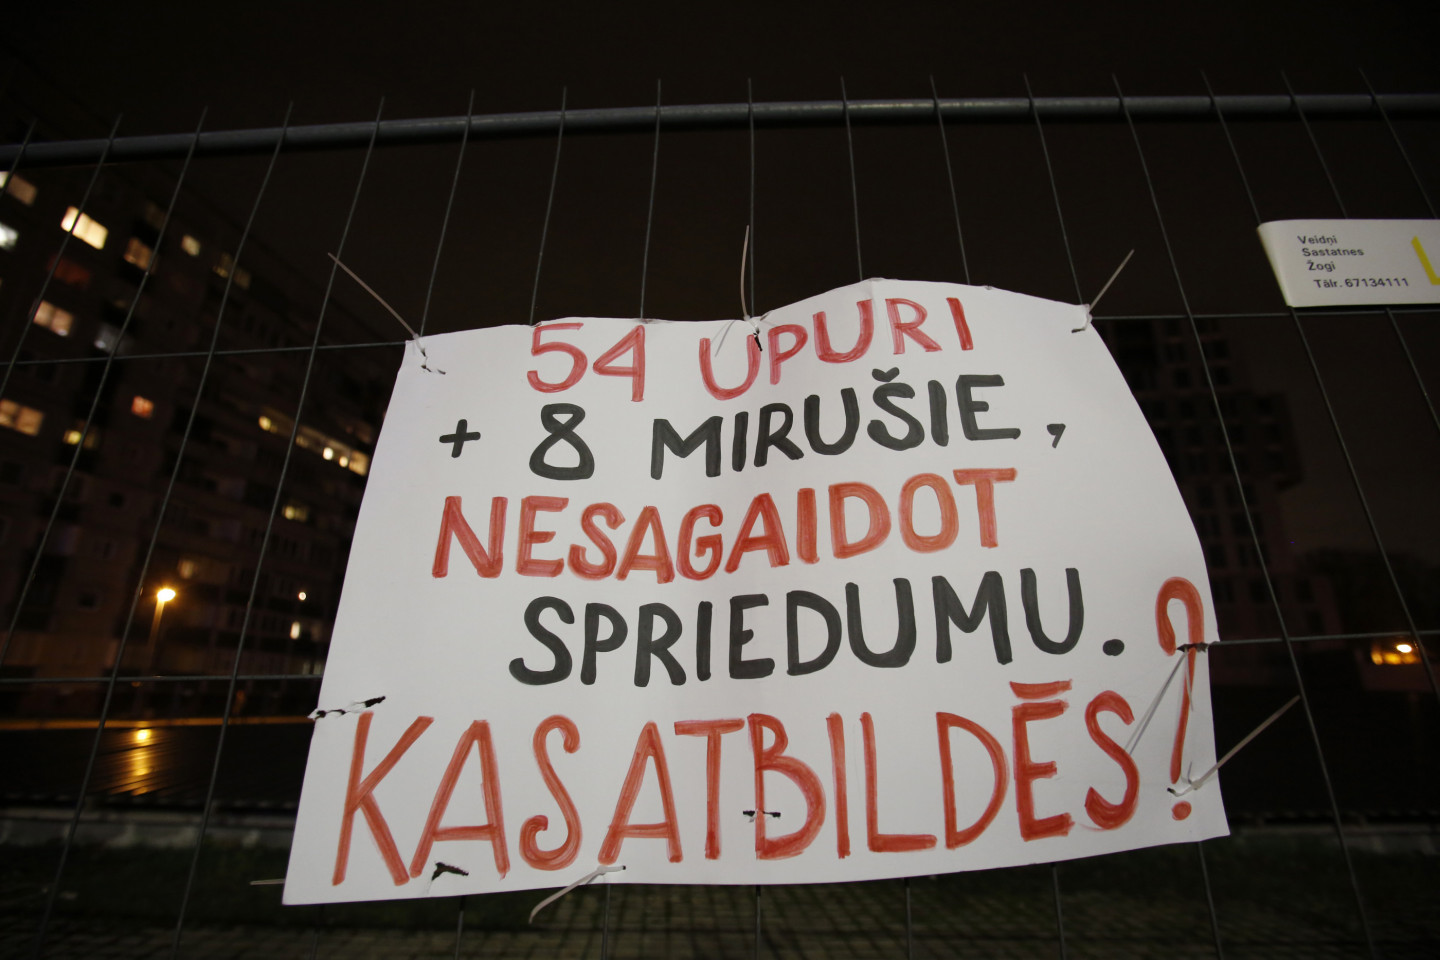 54 UPURI
+ 8 MIRUŠIE,
NESAGAIDOT
SPRIEDUMU.
KAS ATBILDĒS?
Veidņi
Sastatnes
Žogi
Tālr. 67134111